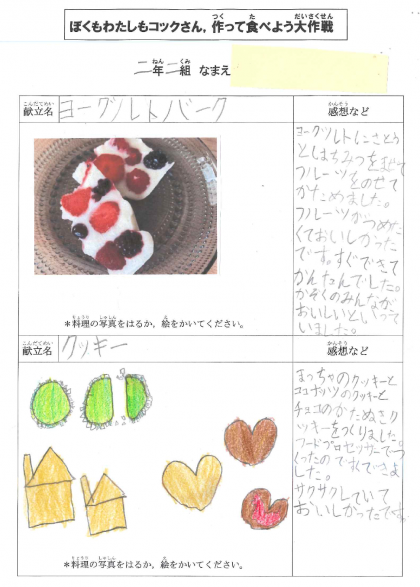 ぼくもわたしもコックさん，作って食べよう大作戦
二年二組 なまえ
献立名 ヨーグルトバーク
感想など
ヨーグルトにさとう
とはちみつをまぜて
フルーツをのせて
かためました。
フルーツがつめた
くておいしかった
です。すぐできて
かんたんでした。
かぞくのみんなが
おいしいといって
いました。
＊料理の写真をはるか，絵をかいてください。
献立名 クッキー
感想など
まっちゃのクッキーと
ココナッツのクッキーと
チョコのかたぬきク
ッキーをつくりました。
フードプロセッサーでつ
くったので
した。
サクサクしていて
おいしかったです。
＊料理の写真をはるか，絵をかいてください。